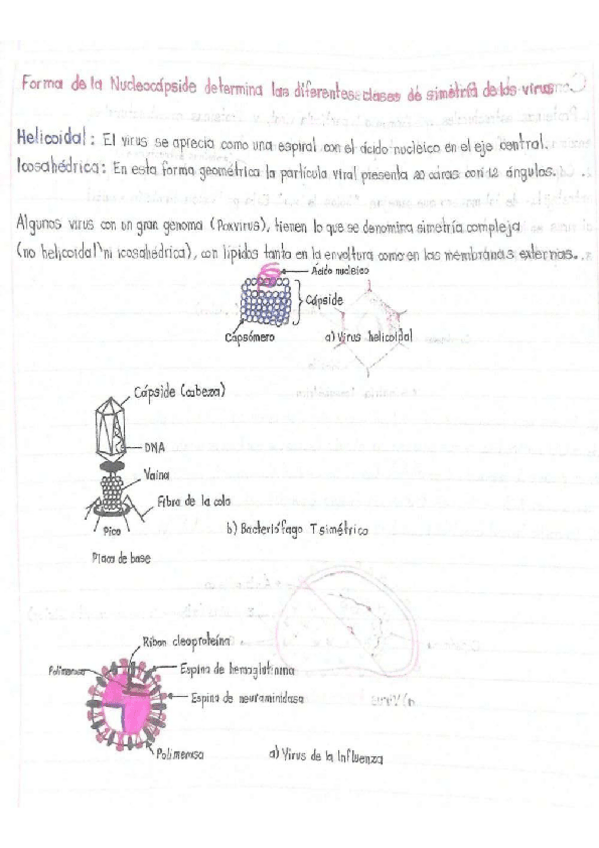 Forma de la Nucleocápside determina las diferentes clases de simetría de los virus
Helicoidal: El virus se aprecia como una espiral con el ácido nucleico en el eje central.
Icosahédrica: En esta forma geométrica la partícula viral presenta 20 caras con 12 ángulos.
Algunos virus con un gran genoma (Poxvirus), tienen lo que se denomina simetría compleja
(no helicoidal ni icosahédrica), con lípidos tanto en la envoltura como en las membranas externas.
Ácido nucleico
Cápside
Capsómero
a) Virus helicoidal
Cápside (cabeza)
DNA
Vaina
Fibra de la cola
Pico
b) Bacteriófago T simétrico
Placa de base
Ribon cleoproteína
Polimerasa
Espina de hemoglutinina
Espina de neuraminidasa
Polimerasa
a) Virus de la Influenza